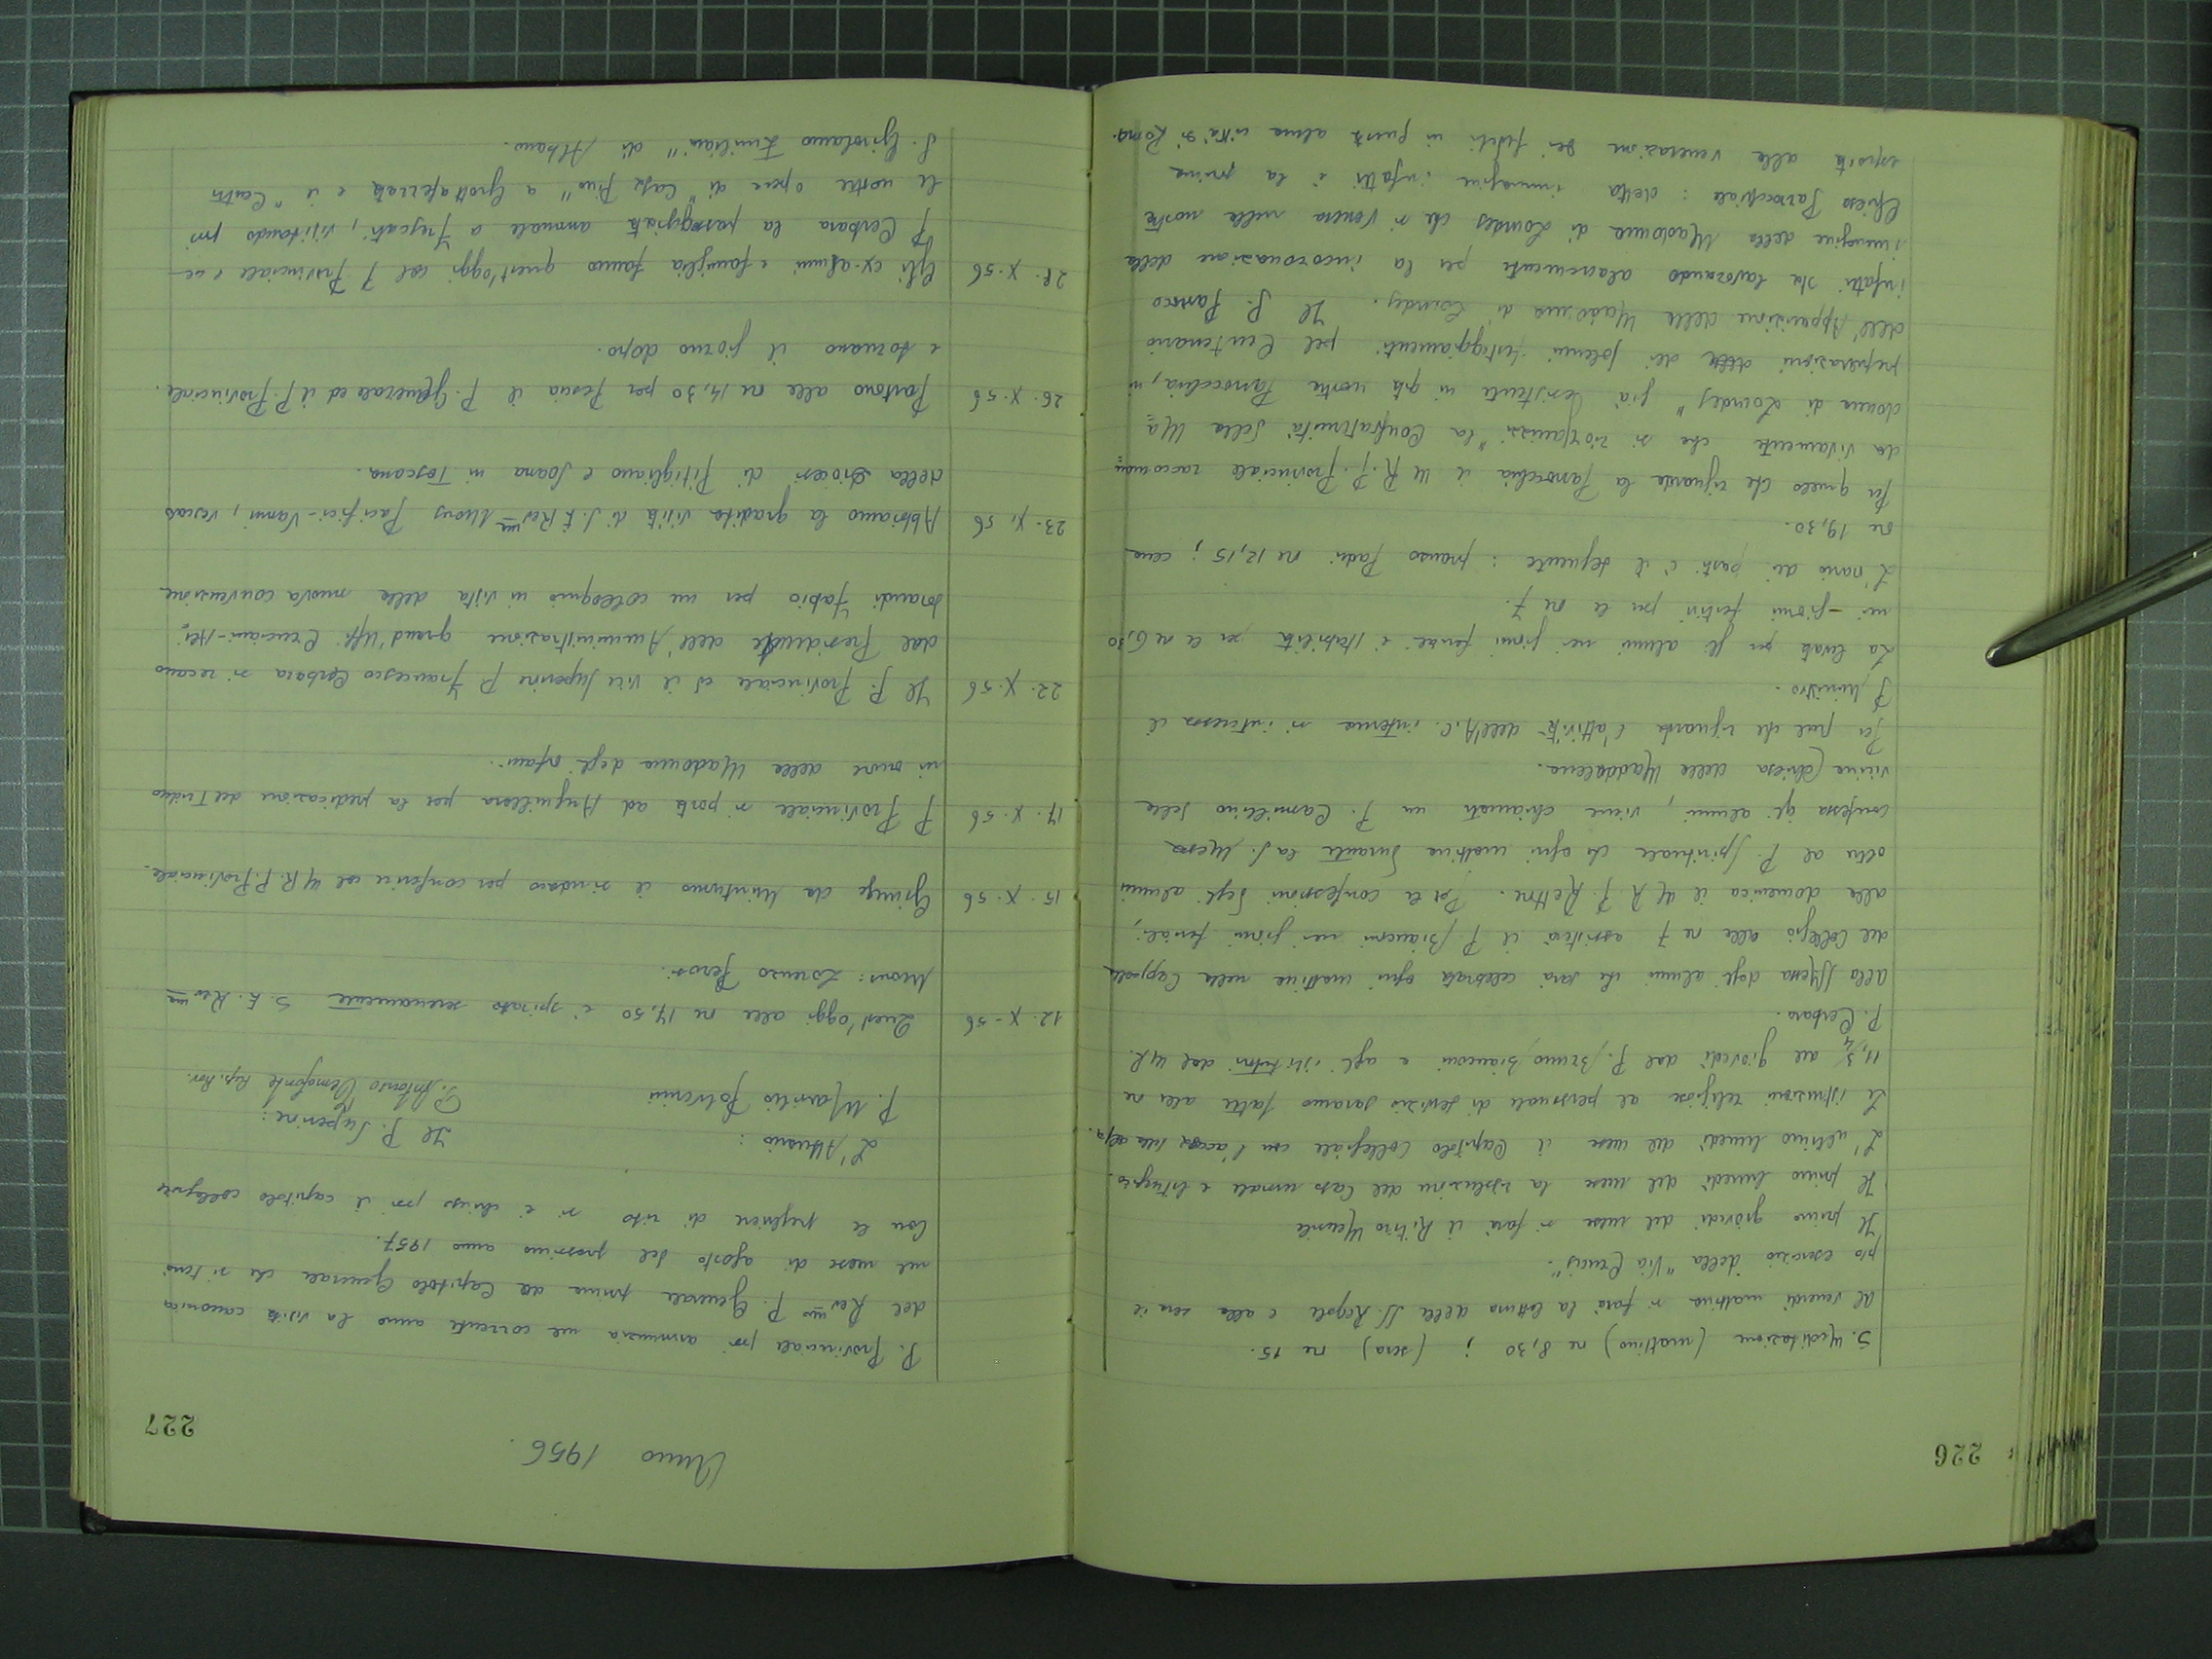 226
S. Meditazione (mattino) ore 8,30 ; (sera) ore 15.
Al venerdì mattina si farà la lettura delle SS. Regole e alla sera il
pio esercizio della "Via Crucis".
Il primo giovedì del mese si farà il Ritiro Mensile
Il primo lunedì del mese la soluzione del Caso morale e liturgico.
L'ultimo lunedì del mese il Capitolo Collegiale con l'accusa
Le istruzioni religiose al personale di servizio saranno fatte alle ore
11,3/4 del giovedì dal P. Bruno Bianconi e agli istitutori dal M.R.
P. Cerbara.
Alla S. Messa degli alunni che sarà celebrata ogni mattina nella Cappella
del Collegio alle ore 7 assisterà il P. Bianconi nei giorni feriali;
alla domenica il M R P. Rettore. Per le confessioni degli alunni
oltre al P. Spirituale che ogni mattina durante la S. Messa
confessa gli alunni, viene chiamato un P. Camillino della
vicina Chiesa della Maddalena.
Per quel che riguarda l'attività dell'A.C. interna si interessa il
P. Ministro.
La levata per gli alunni nei giorni feriali è stabilita per le ore 6,30
nei giorni festivi per le ore 7.
L'orario dei pasti è il seguente : pranzo Padri ore 12,15 ; cena
ore 19,30.
Per quello che riguarda la Parrocchia il M R. P. Provinciale raccoman
da vivamente che si riorganizzi "la Confraternità della Ma
donna di Lourdes" già esistente in qta nostra Parrocchia, in
preparazione dei solenni festeggiamenti pel Centenario
dell'Apparizione della Madonna di Lourdes. Il P. Parroco
infatti sta lavorando alacremente per la incoronazione della
immagine della Madonna di Lourdes che si venera nella nostra
Chiesa Parrocchiale : detta immagine infatti è la prima
esposta alla venerazione dei fedeli in questa alma città di Roma.
Anno 1956.
227
P. Provinciale poi annunzia nel corrente anno la visita canonica
del Rev.mo P. Generale prima del Capitolo Generale che si terrà
nel mese di agosto del prossimo anno 1957.
Con le preghiere di rito si è chiuso poi il capitolo collegiale
L'Attuario : Il P. Superiore :
P. Manlio P. Antonio
12 . X - 56 Quest'oggi alle ore 14,50 è spirato serenamente S. E. Rev.ma
Mons: Lorenzo Perosi.
15 . X . 56 Giunge da Minturno il sindaco per conferire col M R. P. Provinciale.
17 . X . 56 P. Provinciale si porta ad Anguillara per la predicazione del Triduo
in onore della Madonna degli Orfani.
22 . X . 56 Il P. Provinciale ed il Vice Superiore P Francesco Cerbara si recano
dal Presidente dell'Amministrazione grand'Uff.
Fabio per un colloquio in vista della nuova convenzione
23 . X . 56 Abbiamo la gradita visita di S. E Rev.ma Mons Pacifici-Vanni, vescovo
della diocesi di Pitigliano e Soana in Toscana.
26 . X . 56 Partono alle ore 14,30 per Pescia il P. Generale ed il P. Provinciale.
e tornano il giorno dopo.
28 . X . 56 Gli ex-alunni e famiglia fanno quest'oggi col P Provinciale e
P Cerbara la passeggiata annuale a Frascati, visitando poi
le nostre opere di "Casa Pino" a Grottaferrata e il "Centro
S. Girolamo Emiliani" di Albano.